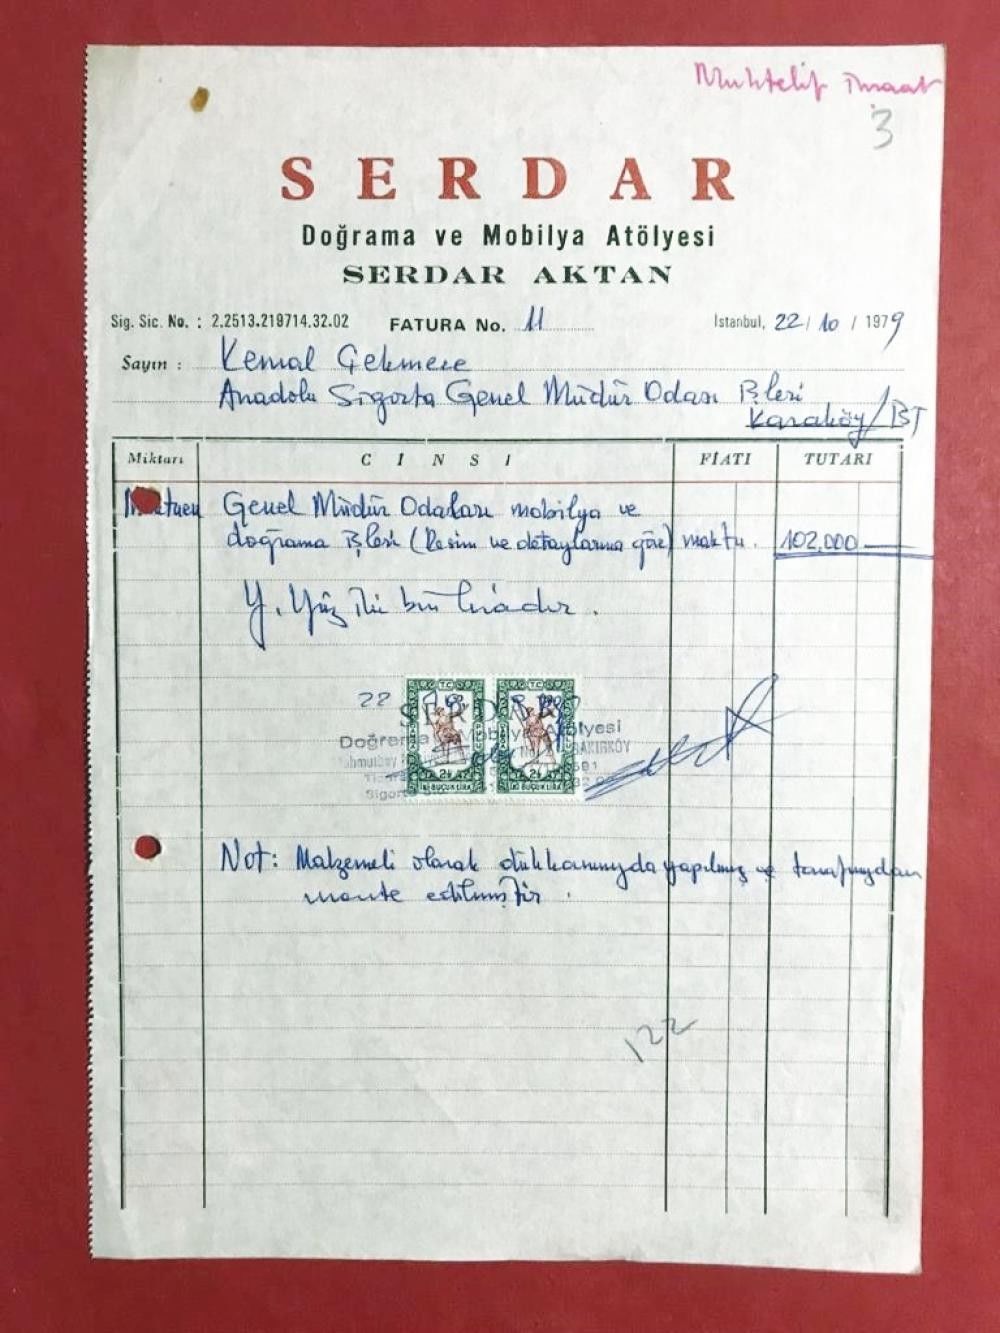 Muhtelif inşaat
3
SERDAR
Doğrama ve Mobilya Atölyesi
SERDAR AKTAN
Sig. Sic. No. : 2.2513.219714.32.02 FATURA No. 11 İstanbul, 22/10/1979
Sayın : Kemal Çekmece
Anadolu Sigorta Genel Müdür Odası İşleri
Karaköy/İST
Miktarı CİNSİ FİATI TUTARI
Genel Müdür Odaları mobilya ve
doğrama İşleri (Resim ve detaylarına göre) maktu. 102.000
Y. Yüz iki bin liradır.
22
SERDAR
Doğrama Mobilya Atölyesi
BAKIRKÖY
T.C.
T.C.
2½
2½
İKİ BUÇUK LİRA
İKİ BUÇUK LİRA
Not: Malzemeli olarak dükkanımızda yapılmış ve tarafımızdan
monte edilmiştir.
122